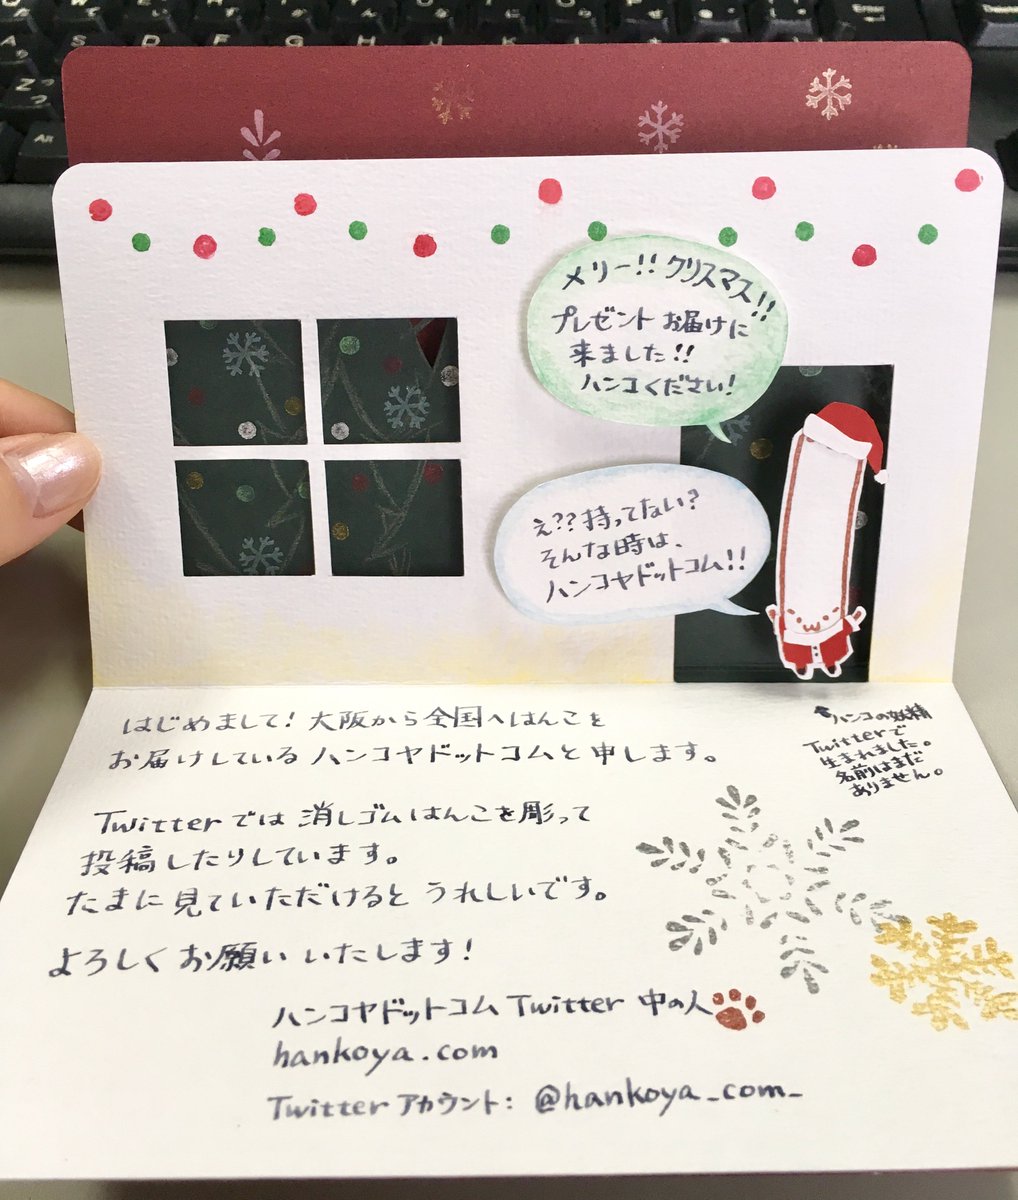 メリー!! クリスマス!!
プレゼント お届けに
来ました!!
ハンコください!
え??持ってない?
そんな時は、
ハンコヤドットコム!!
はじめまして! 大阪から全国へはんこを
お届けしている ハンコヤドットコムと申します。
↑ハンコの妖精
Twitterで
生まれました。
名前はまだ
ありません。
Twitterでは 消しゴムはんこを彫って
投稿したりしています。
たまに見ていただけると うれしいです。
よろしくお願いいたします!
ハンコヤドットコム Twitter 中の人
hankoya.com
Twitterアカウント: @hankoya_com_